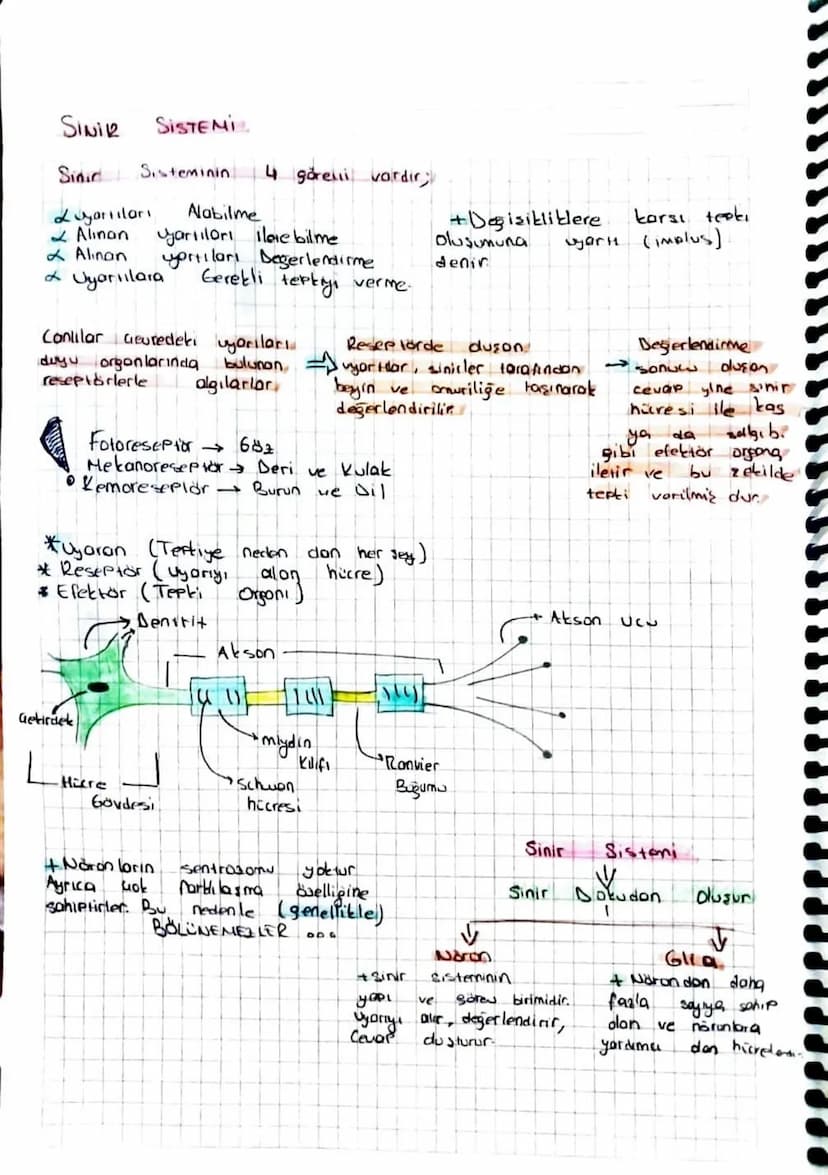 SINIR SİSTEMİ
Sinir Sisteminin 4 görevi vardır;
α uyartıları Alabilme
α Alınan uyartıları iletebilme
α Alınan uyartıları Değerlendirme
α Uyartılara Gerekli tepkiyi verme.
+Değişikliklere karşı tepki
oluşumuna uyartı (impuls)
denir
Canlılar Çevredeki uyarıları
duyu organlarında bulunan
reseptörlerle algılarlar
⇒ Reseptörde oluşan
uyartılar, sinirler tarafından
beyin ve omuriliğe taşınarak
değerlendirilir
→ Değerlendirme
sonucu oluşan
cevap yine sinir
hücresi ile kas
ya da salgı b.
gibi efektör organa
iletir ve bu şekilde
tepki verilmiş olur.
Fotoreseptör → Göz
Mekanoreseptör → Deri ve Kulak
Kemoreseptör → Burun ve Dil
*Uyaran (Tepkiye neden olan her şey)
* Reseptör (uyarıyı alan hücre)
* Efektör (Tepki Organı)
Dentrit
Akson
Akson ucu
Çekirdek
Hücre
Gövdesi
miydin
Kılıfı
Schwan
hücresi
Ranvier
Boğumu
+Nöronların sentrozomu yoktur
Ayrıca çok farklılaşma özelliğine
sahiptirler. Bu nedenle (genellikle)
BÖLÜNEMEZLER ...
Sinir Sistemi
Sinir Dokudan Oluşur
Nöron
+sinir sisteminin
yapı ve görev birimidir.
Uyarıyı alır, değerlendirir,
Cevap oluşturur.
Glia
+ Nörondan daha
fazla sayıya sahip
olan ve nöronlara
yardımcı olan hücreler